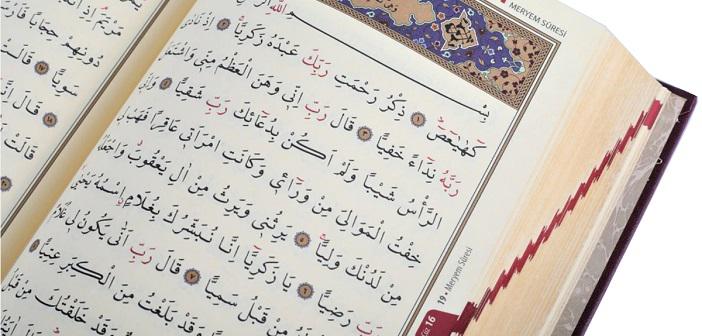 MERYEM SÛRESİ
كٓهٰيٰعٓصٓ ١ ذِكْرُ رَحْمَتِ رَبِّكَ عَبْدَهُ زَكَرِيَّا ٢ اِذْ نَادٰى
رَبَّهُ نِدَٓاءً خَفِيًّا ٣ قَالَ رَبِّ اِنّ۪ي وَهَنَ الْعَظْمُ مِنّ۪ي وَاشْتَعَلَ
الرَّأْسُ شَيْبًا وَلَمْ اَكُنْ بِدُعَٓائِكَ رَبِّ شَقِيًّا ٤ وَاِنّ۪ي
خِفْتُ الْمَوَالِيَ مِنْ وَرَٓاء۪ي وَكَانَتِ امْرَاَت۪ي عَاقِرًا فَهَبْ ل۪ي
مِنْ لَدُنْكَ وَلِيًّا ٥ يَرِثُن۪ي وَيَرِثُ مِنْ اٰلِ يَعْقُوبَ وَاجْعَلْهُ
رَبِّ رَضِيًّا ٦ يَا زَكَرِيَّٓا اِنَّا نُبَشِّرُكَ بِغُلَامٍ اسْمُهُ يَحْيٰى
مِنْ قَبْلُ سَمِيًّا ٧ قَالَ رَبِّ اَنّٰى يَكُونُ ل۪ي غُلَامٌ
وَقَدْ بَلَغْتُ مِنَ الْكِبَرِ عِتِيًّا ٨
وَقَدْ خَلَقْتُكَ مِنْ قَبْلُ
16
19 • Meryem Sûresi
مَرْيَمَ اِذِ
دُونِهِمْ حِجَابًا
سَوِيًّا ١٧ قَالَتْ
١٨ قَالَ
قَالَتْ